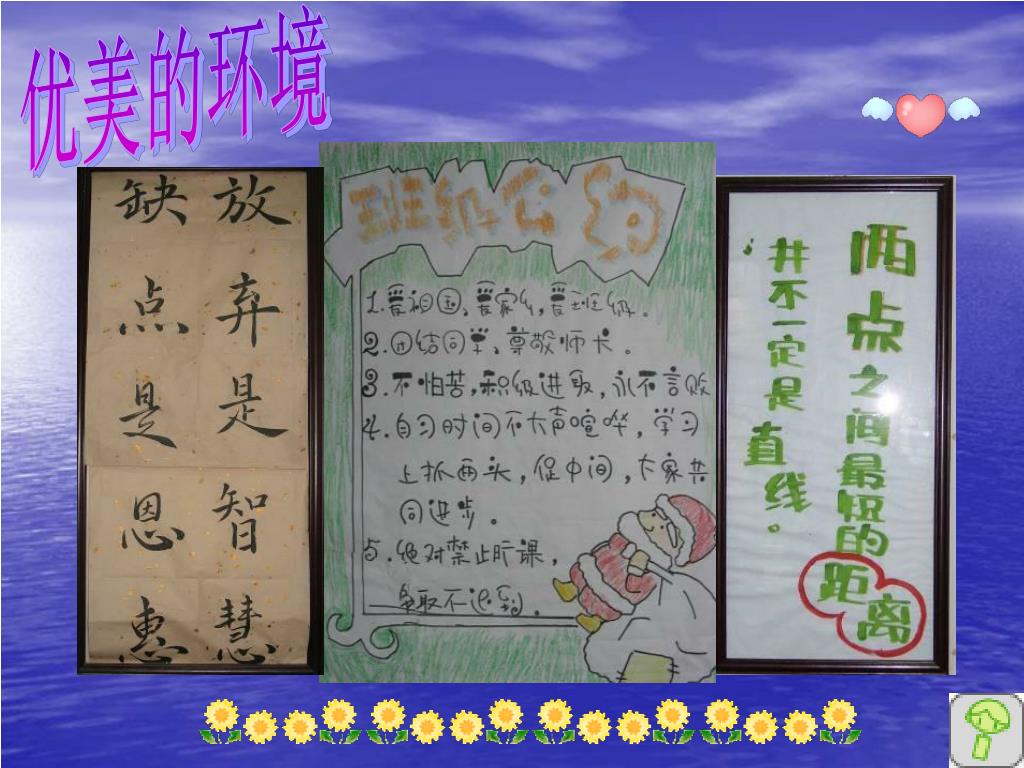 优美的环境
放弃是智慧
缺点是恩惠
班级公约
1.爱祖国,爱家乡,爱班级。
2.团结同学,尊敬师长。
3.不怕苦,积极进取,永不言败
4.自习时间不大声喧哗,学习
上抓两头,促中间,大家共
同进步。
5.绝对禁止旷课,
争取不迟到。
两点之间最快的距离
并不一定是直线。